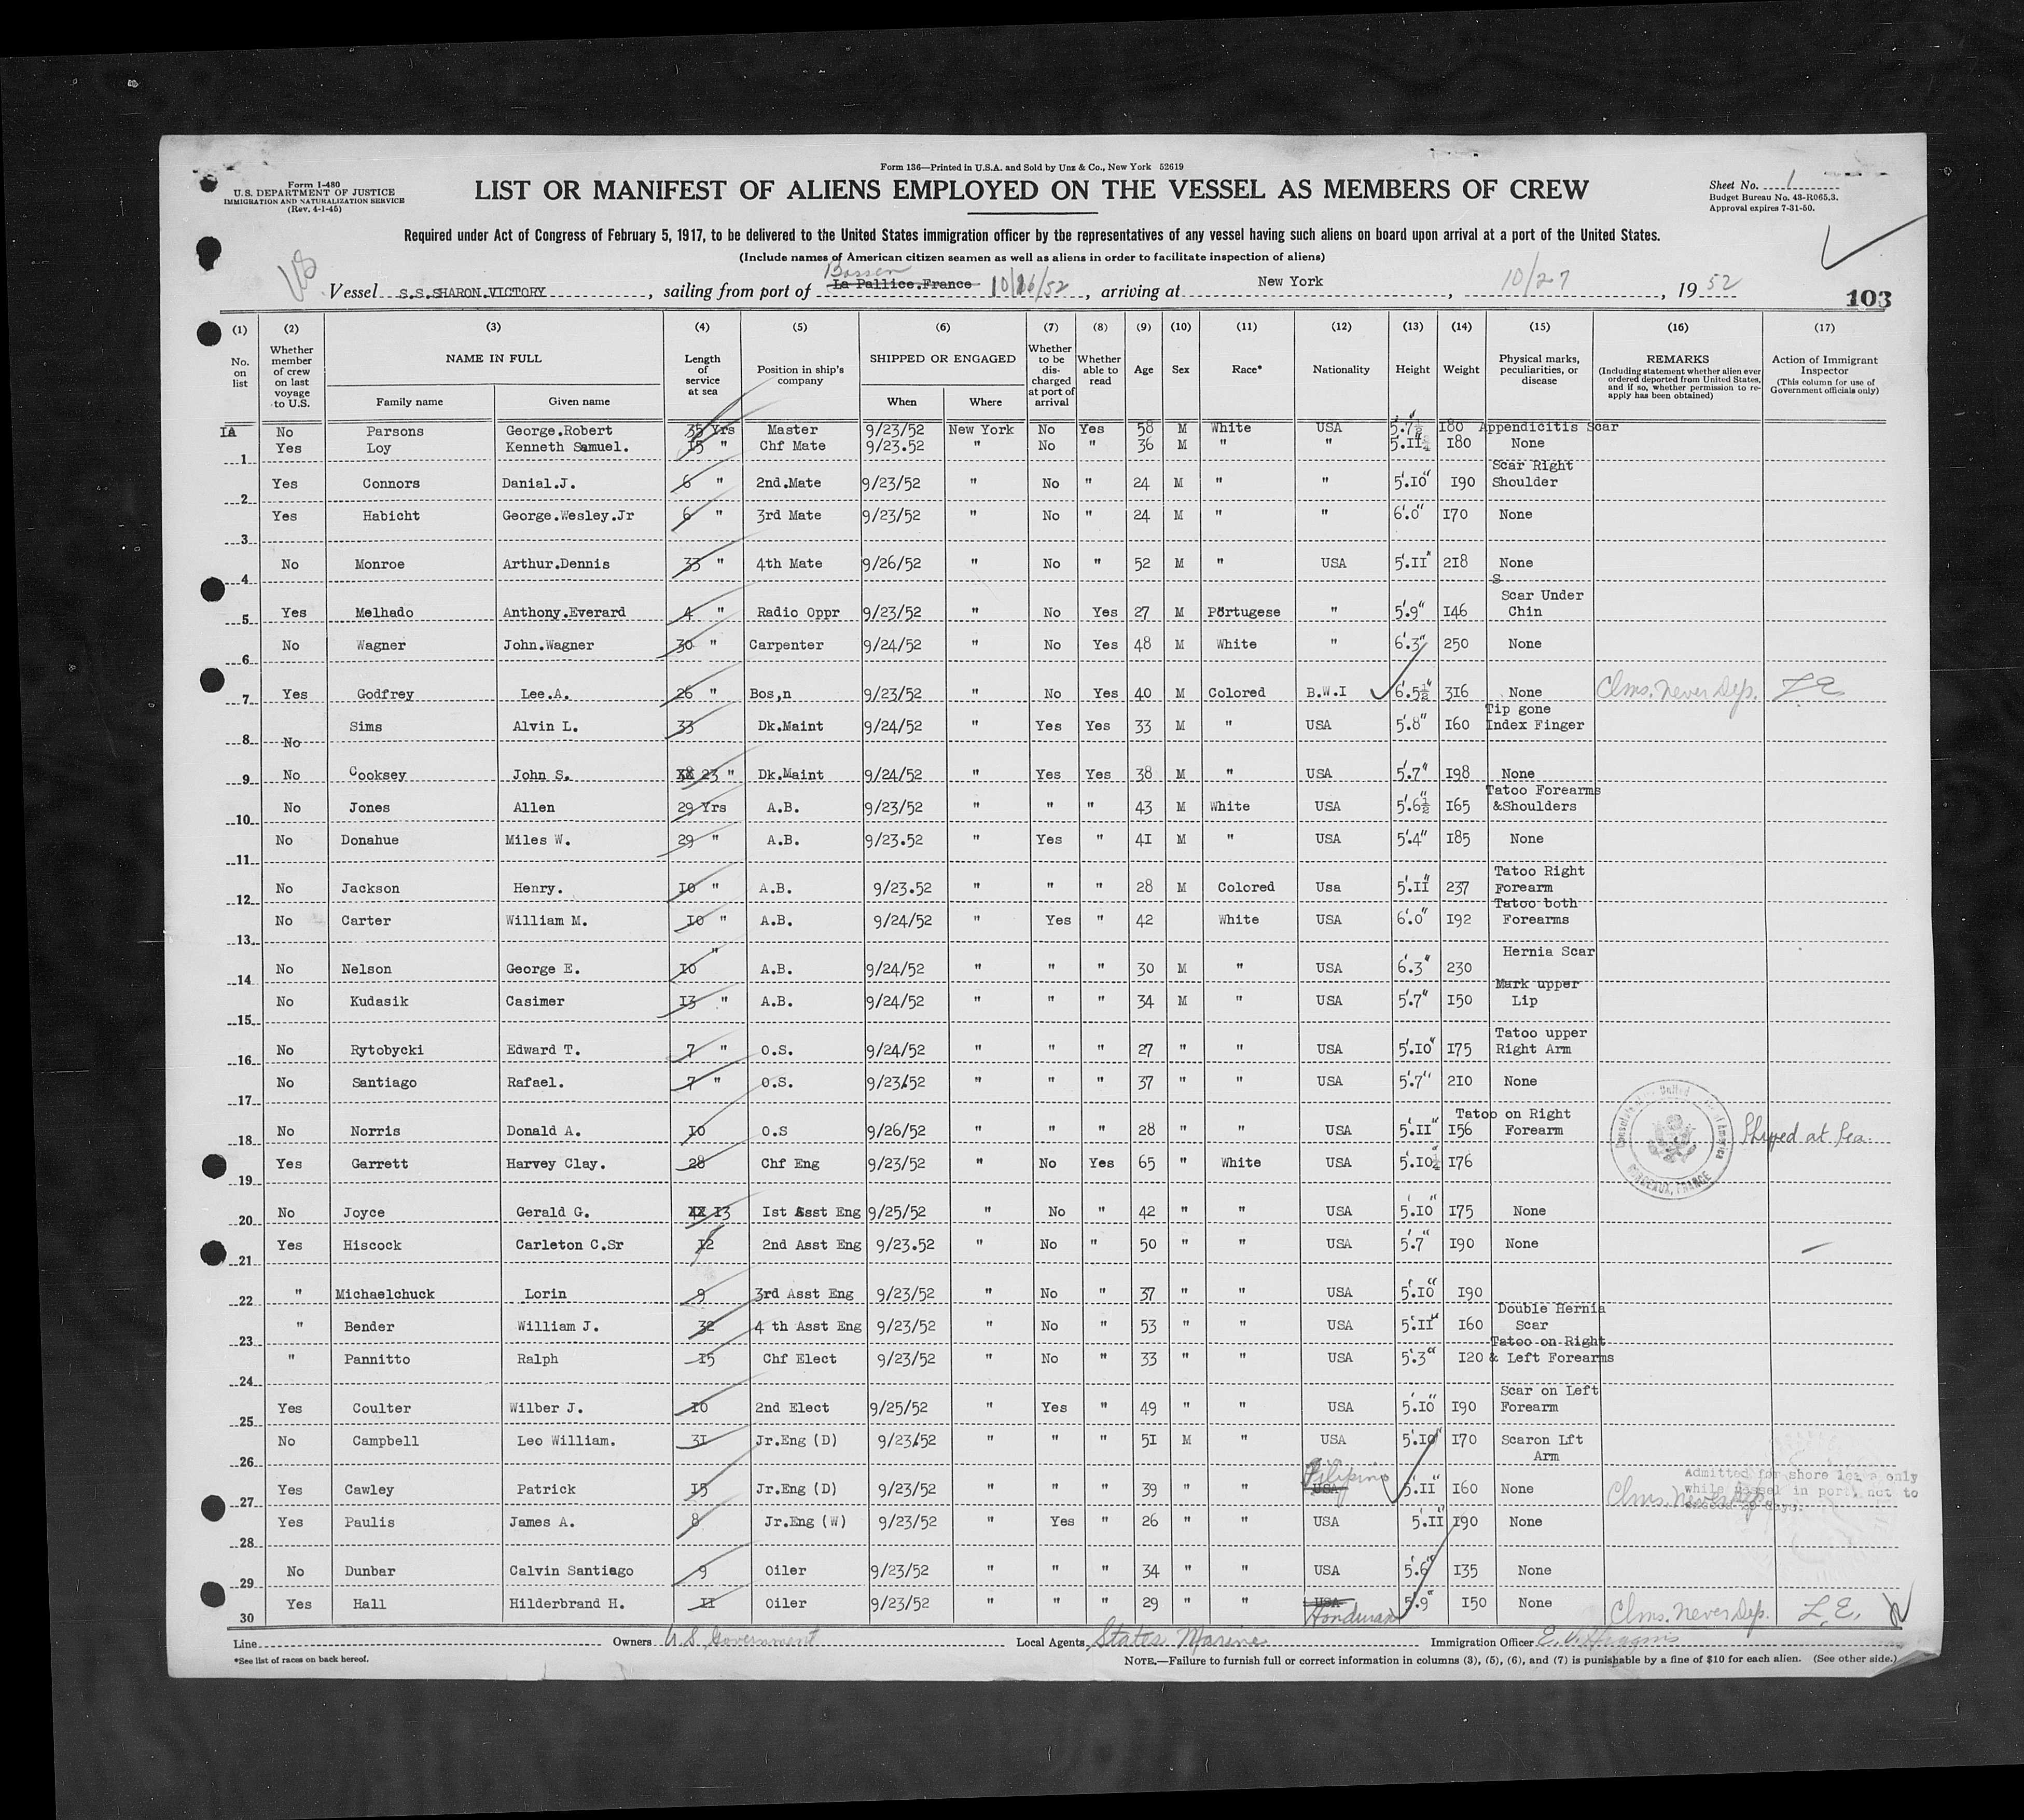 Form 136—Printed in U.S.A. and Sold by Unz & Co., New York 52619
Form I-480
U.S. DEPARTMENT OF JUSTICE
IMMIGRATION AND NATURALIZATION SERVICE
(Rev. 4-1-45)
LIST OR MANIFEST OF ALIENS EMPLOYED ON THE VESSEL AS MEMBERS OF CREW
Sheet No. 1
Budget Bureau No. 43-R065.3.
Approval expires 7-31-50.
Required under Act of Congress of February 5, 1917, to be delivered to the United States immigration officer by the representatives of any vessel having such aliens on board upon arrival at a port of the United States.
(Include names of American citizen seamen as well as aliens in order to facilitate inspection of aliens)
US
Vessel S.S.SHARON.VICTORY, sailing from port of La Pallice.France 10/16/52, arriving at New York, 10/27, 1952
103
(1) (2) (3) (4) (5) (6) (7) (8) (9) (10) (11) (12) (13) (14) (15) (16) (17)
No. on list
Whether member of crew on last voyage to U.S.
NAME IN FULL
Family name Given name
Length of service at sea
Position in ship's company
SHIPPED OR ENGAGED
When Where
Whether to be discharged at port of arrival
Whether able to read
Age
Sex
Race*
Nationality
Height
Weight
Physical marks, peculiarities, or disease
REMARKS
(Including statement whether alien ever ordered deported from United States, and if so, whether permission to reapply has been obtained)
Action of Immigrant Inspector
(This column for use of Government officials only)
IA No Parsons George.Robert 35 Yrs Master 9/23/52 New York No Yes 58 M White USA 5.7½ I80 Appendicitis Scar
1 Yes Loy Kenneth Samuel. I5 " Chf Mate 9/23.52 " No " 36 M " " 5.II I80 None
2 Yes Connors Danial.J. 6 " 2nd.Mate 9/23/52 " No " 24 M " " 5'.I0" I90 Scar Right Shoulder
3 Yes Habicht George.Wesley.Jr 6 " 3rd Mate 9/23/52 " No " 24 M " " 6'.0" I70 None
4 No Monroe Arthur.Dennis 33 " 4th Mate 9/26/52 " No " 52 M " USA 5'.II" 2I8 None
S
5 Yes Melhado Anthony.Everard 4 " Radio Oppr 9/23/52 " No Yes 27 M Portugese " 5'.9" I46 Scar Under Chin
6 No Wagner John.Wagner 30 " Carpenter 9/24/52 " No Yes 48 M White " 6'.3" 250 None
7 Yes Godfrey Lee.A. 26 " Bos,n 9/23/52 " No Yes 40 M Colored B.W.I 6'.5½" 3I6 None Clms. Never Dep.
8 No Sims Alvin L. 33 Dk.Maint 9/24/52 " Yes Yes 33 M " USA 5'.8" I60 Tip gone Index Finger
9 No Cooksey John S. 23 " Dk.Maint 9/24/52 " Yes Yes 38 M " USA 5'.7" I98 None
10 No Jones Allen 29 Yrs A.B. 9/23/52 " " " 43 M White USA 5'.6½ I65 Tatoo Forearms &Shoulders
11 No Donahue Miles W. 29 " A.B. 9/23.52 " Yes " 4I M " USA 5'.4" I85 None
12 No Jackson Henry. I0 " A.B. 9/23.52 " " " 28 M Colored Usa 5'.II" 237 Tatoo Right Forearm
13 No Carter William M. I0 " A.B. 9/24/52 " Yes " 42 White USA 6'.0" I92 Tatoo both Forearms
14 No Nelson George E. I0 " A.B. 9/24/52 " " " 30 M " USA 6'.3" 230 Hernia Scar
15 No Kudasik Casimer I3 " A.B. 9/24/52 " " " 34 M " USA 5'.7" I50 Mark upper Lip
16 No Rytobycki Edward T. 7 " O.S. 9/24/52 " " " 27 " " USA 5'.I0" I75 Tatoo upper Right Arm
17 No Santiago Rafael. 7 " O.S. 9/23/52 " " " 37 " " USA 5'.7" 2I0 None
18 No Norris Donald A. I0 O.S 9/26/52 " " " 28 " " USA 5'.II" I56 Tatoo on Right Forearm Shipped at Sea.
19 Yes Garrett Harvey Clay. 28 Chf Eng 9/23/52 " No Yes 65 " White USA 5'.I0½ I76
BORDEAUX, FRANCE
20 No Joyce Gerald G. I3 Ist Asst Eng 9/25/52 " No " 42 " " USA 5.I0" I75 None
21 Yes Hiscock Carleton C.Sr I2 2nd Asst Eng 9/23.52 " No " 50 " " USA 5.7" I90 None
22 " Michaelchuck Lorin 9 3rd Asst Eng 9/23/52 " No " 37 " " USA 5'.I0" I90
23 " Bender William J. 32 4 th Asst Eng 9/23/52 " No " 53 " " USA 5'.II" I60 Double Hernia Scar
24 " Pannitto Ralph I5 Chf Elect 9/23/52 " No " 33 " " USA 5'.3" I20 Tatoo on Right & Left Forearms
25 Yes Coulter Wilber J. I0 2nd Elect 9/25/52 " Yes " 49 " " USA 5'.I0" I90 Scar on Left Forearm
26 No Campbell Leo William. 3I Jr.Eng (D) 9/23/52 " " " 5I M " USA 5'.I0" I70 Scaron Lft Arm
27 Yes Cawley Patrick I5 Jr.Eng (D) 9/23/52 " " " 39 " " USA Filipino 5'.II" I60 None Clms. Never Dep.
Admitted for shore leave only while vessel in port, not to exceed 29 days.
28 Yes Paulis James A. 8 Jr.Eng (W) 9/23/52 " Yes " 26 " " USA 5'.II I90 None
29 No Dunbar Calvin Santiago 9 Oiler 9/23/52 " " " 34 " " USA 5'.6" I35 None
30 Yes Hall Hilderbrand H. II Oiler 9/23/52 " " " 29 " " USA Honduran 5'.9" I50 None Clms. Never Dep. L.E.
Line Owners U.S. Government Local Agents States Marine Immigration Officer E. V. Higgins
*See list of races on back hereof.
NOTE.—Failure to furnish full or correct information in columns (3), (5), (6), and (7) is punishable by a fine of $10 for each alien. (See other side.)